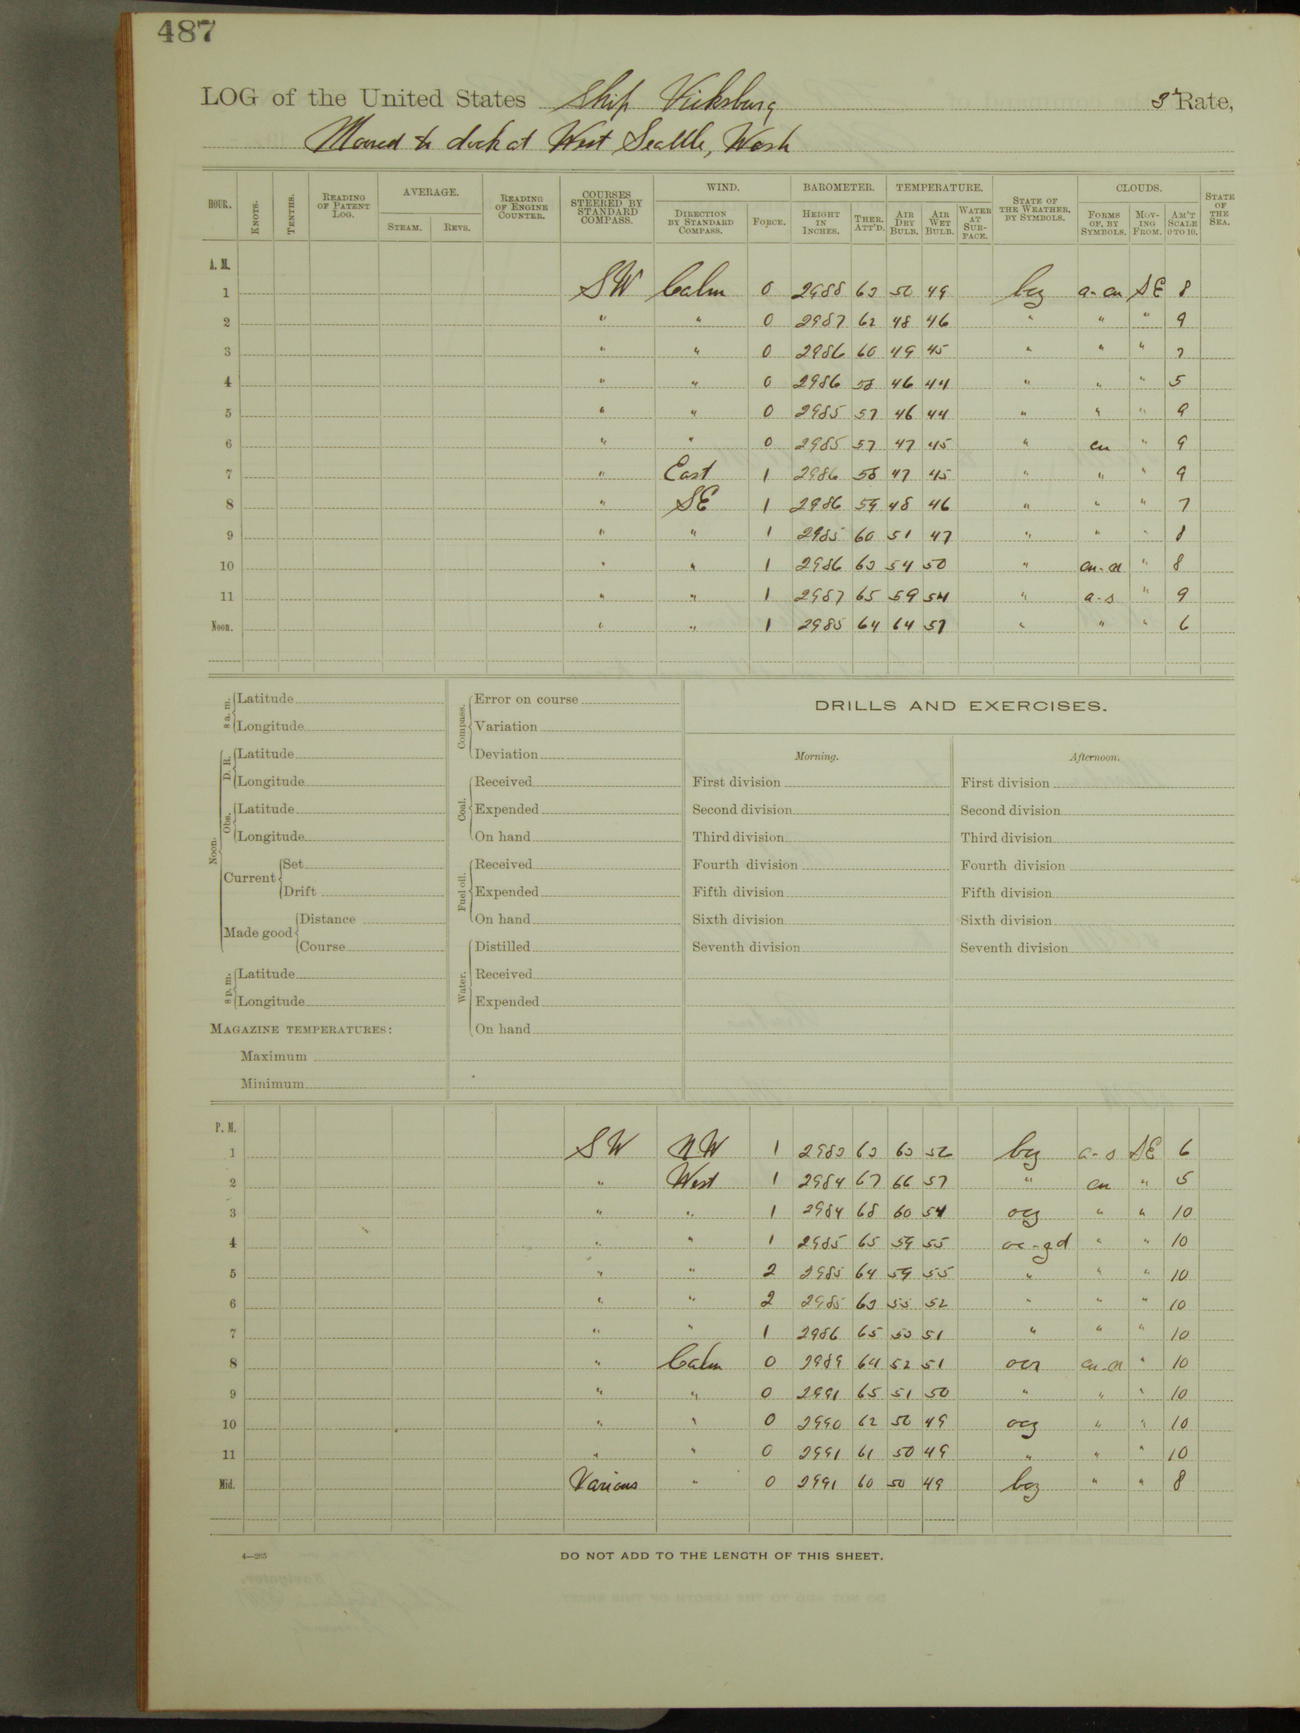 487
LOG of the United States Ship Vicksburg 3d Rate,
Moored to dock at West Seattle, Wash
HOUR. KNOTS. TENTHS. READING OF PATENT LOG. AVERAGE. STEAM. REVS. READING OF ENGINE COUNTER. COURSES STEERED BY STANDARD COMPASS. WIND. DIRECTION BY STANDARD COMPASS. FORCE. BAROMETER. HEIGHT IN INCHES. THER. ATT'D. TEMPERATURE. AIR DRY BULB. AIR WET BULB. WATER AT SURFACE. STATE OF THE WEATHER, BY SYMBOLS. CLOUDS. FORMS OF, BY SYMBOLS. MOVING FROM. AM'T SCALE 0 TO 10. STATE OF THE SEA.
A. M.
1 SW Calm 0 2988 63 50 49 bcz a-cu SE 8
2 " " 0 2987 62 48 46 " " " 9
3 " " 0 2986 60 49 45 " " " 7
4 " " 0 2986 58 46 44 " " " 5
5 " " 0 2985 57 46 44 " " " 9
6 " " 0 2985 57 47 45 " cu " 9
7 " East 1 2986 58 47 45 " " " 9
8 " SE 1 2986 59 48 46 " " " 7
9 " " 1 2985 60 51 47 " " " 8
10 " " 1 2986 63 54 50 " cu-n " 8
11 " " 1 2987 65 59 54 " a-s " 9
Noon. " " 1 2985 64 64 57 " " " 6
8 a. m. Latitude
Longitude
Noon. D. R. Latitude
Longitude
Obs. Latitude
Longitude
Current Set
Drift
Made good Distance
Course
8 p. m. Latitude
Longitude
MAGAZINE TEMPERATURES:
Maximum
Minimum
Compass. Error on course
Variation
Deviation
Coal. Received
Expended
On hand
Fuel oil. Received
Expended
On hand
Water. Distilled
Received
Expended
On hand
DRILLS AND EXERCISES.
Morning.
First division
Second division
Third division
Fourth division
Fifth division
Sixth division
Seventh division
Afternoon.
First division
Second division
Third division
Fourth division
Fifth division
Sixth division
Seventh division
P. M.
1 SW NW 1 2983 63 63 56 bcz a-s SE 6
2 " West 1 2984 67 66 57 " cu " 5
3 " " 1 2984 68 60 54 ocz " " 10
4 " " 1 2985 65 59 55 oc-gd " " 10
5 " " 2 2985 64 59 55 " " " 10
6 " " 2 2985 63 55 52 " " " 10
7 " " 1 2986 65 53 51 " " " 10
8 " Calm 0 2989 64 52 51 ocr cu-n " 10
9 " " 0 2991 65 51 50 " " " 10
10 " " 0 2990 62 50 49 ocz " " 10
11 " " 0 2991 61 50 49 " " " 10
Mid. Various " 0 2991 60 50 49 bcz " " 8
4—265
DO NOT ADD TO THE LENGTH OF THIS SHEET.